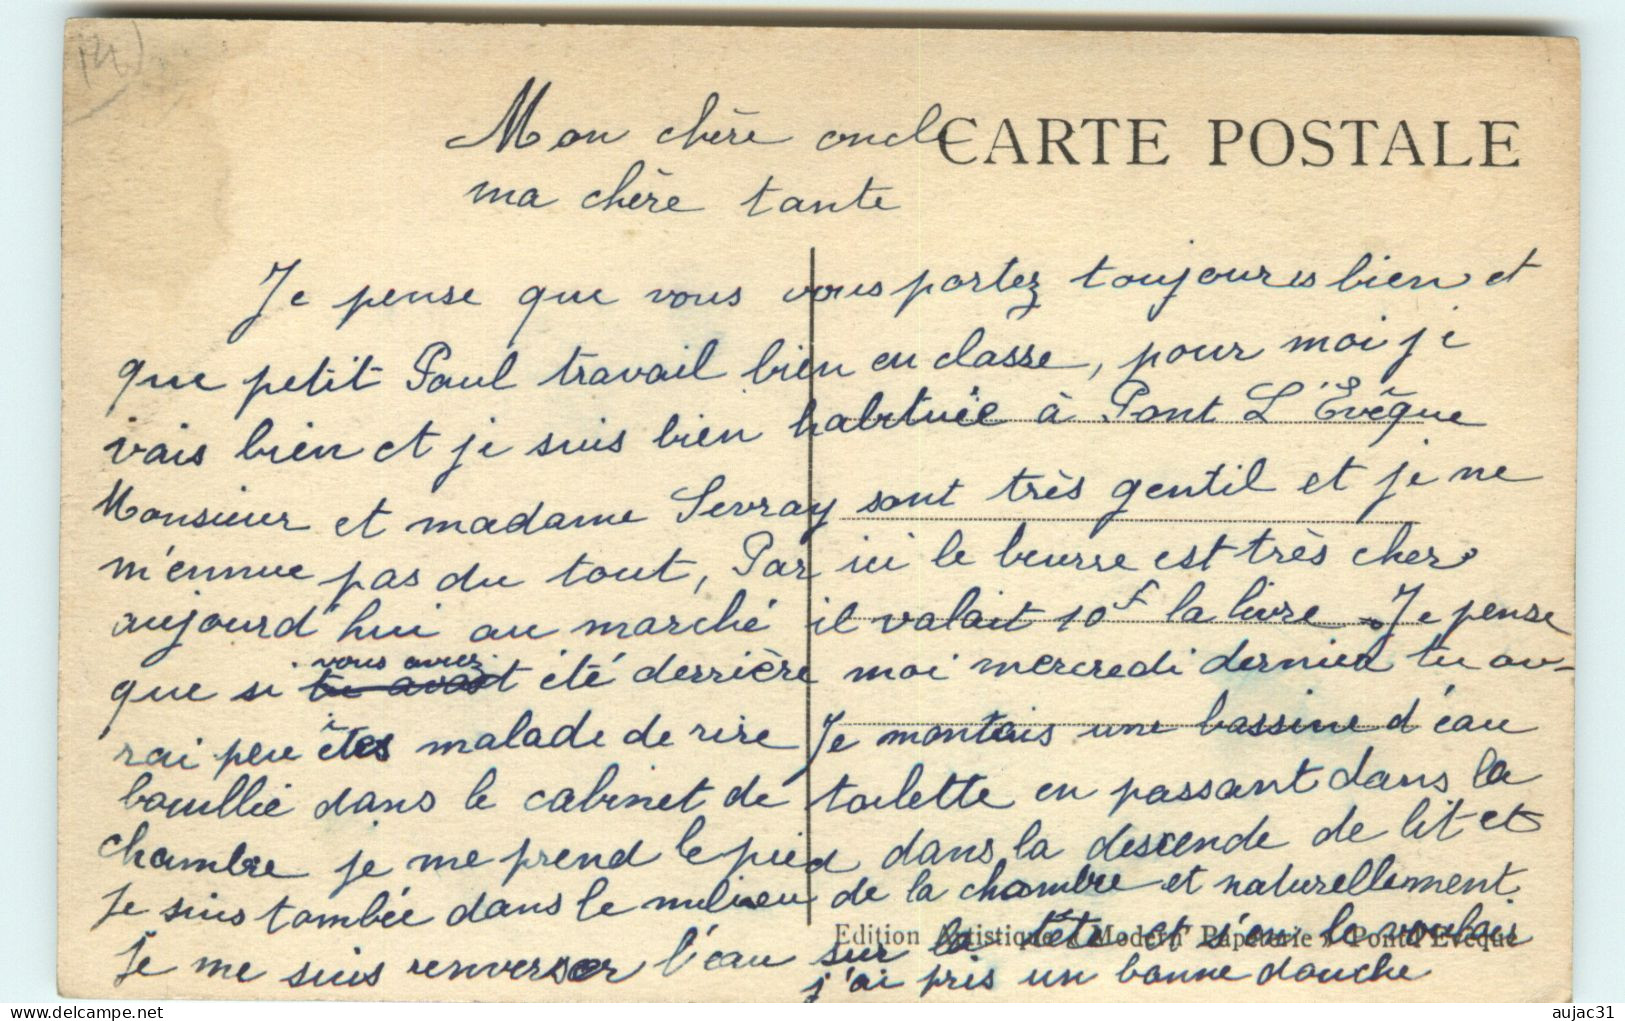 Mon chère oncle
CARTE POSTALE
ma chère tante
Je pense que vous vous portez toujours bien et
que petit Paul travail bien en classe, pour moi je
vais bien et je suis bien habituée à Pont L'Évêque
Monsieur et madame Sevray sont très gentil et je ne
m'ennue pas du tout, Par ici le beurre est très cher
aujourd'hui au marché il valait 10f la livre. Je pense
vous auriez
que si tu avait été derrière moi mercredi dernier tu au-
rai peu êtes malade de rire Je montais une bassine d'eau
bouillie dans le cabinet de toilette en passant dans la
chambre je me prend le pied dans la descende de lit et
Je suis tombée dans le milieu de la chambre et naturellement
Edition Artistique « Modern' Papeterie » Pont-l'Evêque
Je me suis renverser l'eau sur la tête et s'en le vouloir
j'ai pris un bonne douche
aujac31